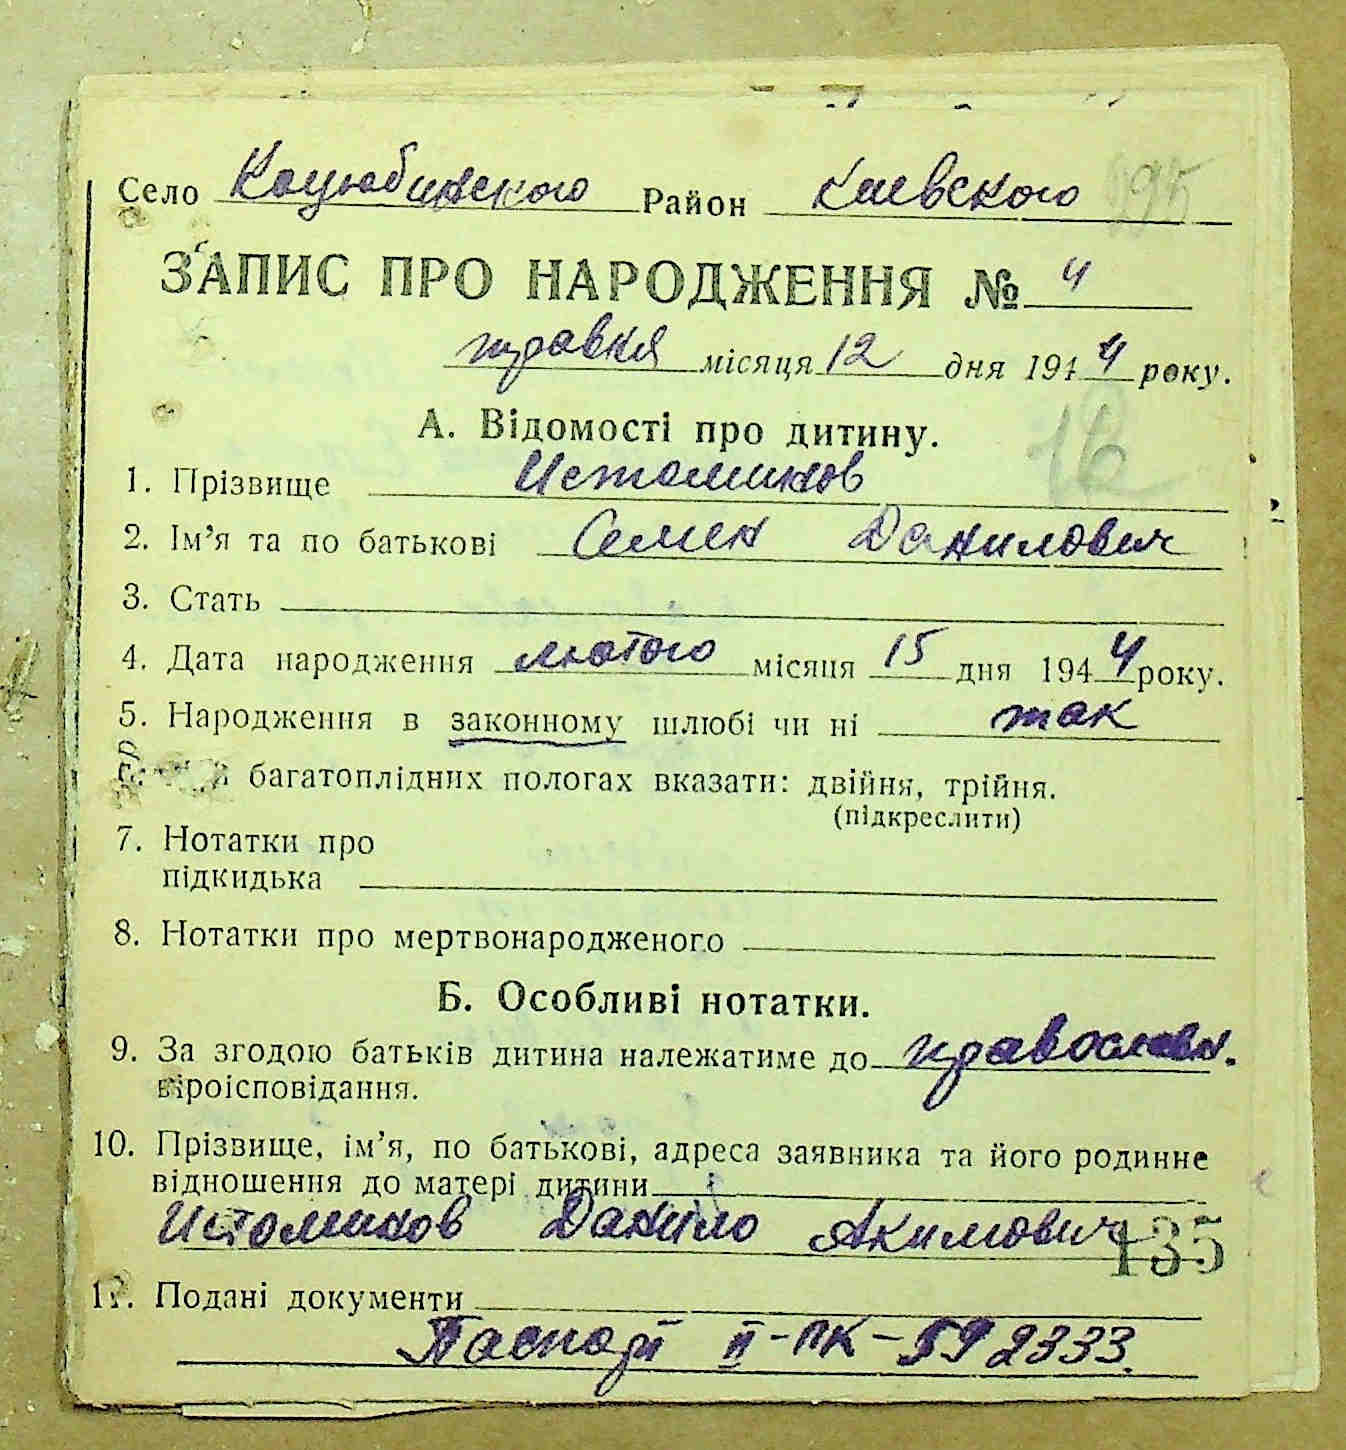 Село Коцюбинского Район Киевского 195
ЗАПИС ПРО НАРОДЖЕННЯ № 4
травня місяця 12 дня 1944 року.
А. Відомості про дитину.
1. Прізвище Истомиков
2. Ім'я та по батькові Семен Данилович
3. Стать
4. Дата народження лютого місяця 15 дня 1944 року.
5. Народження в законному шлюбі чи ні так
багатоплідних пологах вказати: двійня, трійня.
(підкреслити)
7. Нотатки про
підкидька
8. Нотатки про мертвонародженого
Б. Особливі нотатки.
9. За згодою батьків дитина належатиме до православн.
віроісповідання.
10. Прізвище, ім'я, по батькові, адреса заявника та його родинне
відношення до матері дитини
Истомиков Данило Акимович
135
11. Подані документи
Паспорт II-ПК-592333.